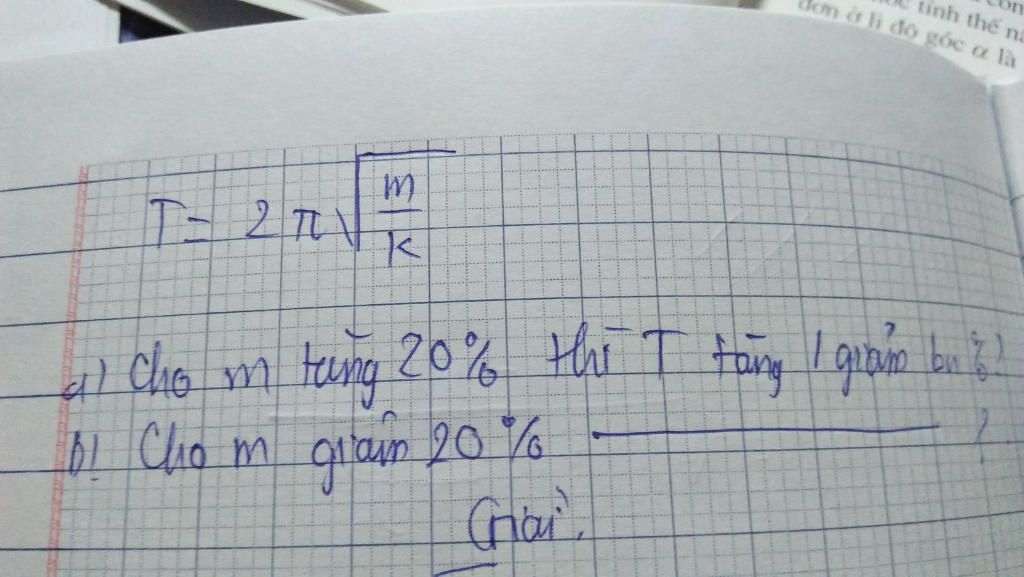 con
tính thế nă
đơn ở li độ góc α là
T = 2π√(m/k)
a) Cho m tăng 20% thì T tăng / giảm bn %?
b) Cho m giảm 20% ———— ?
Giải.